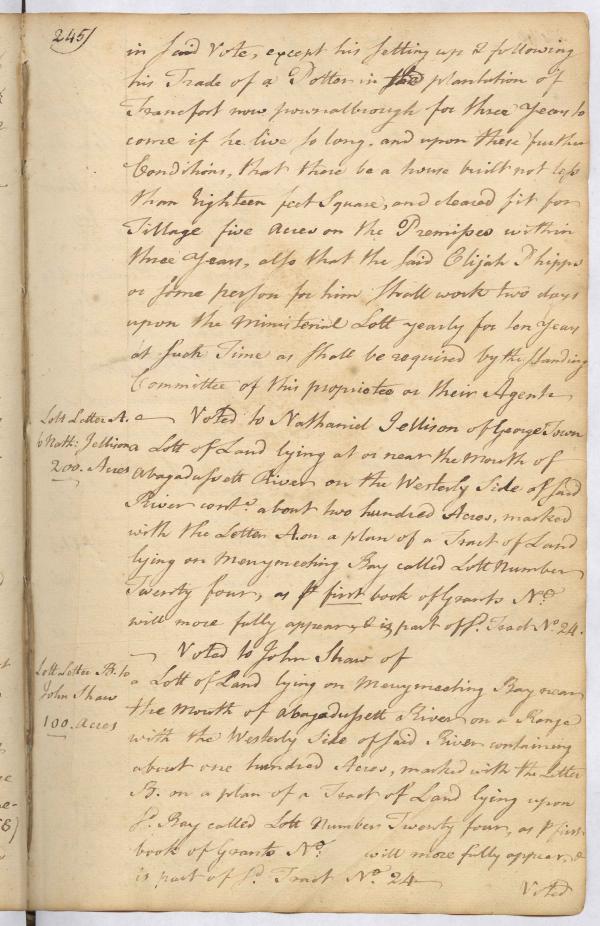 245)
in said Vote, except his setting up & following
his Trade of a Potter in said plantation of
Francfort now pownalbrough for three Years to
come if he live so long. and upon these further
Conditions, that there be a house built not less
than Eighteen feet Square, and cleared fit for
Tillage five Acres on the Premises within
three Years, also that the said Elijah Phipps
or some person for him shall work two days
upon the Ministerial Lott yearly for ten Years
at such Time as shall be required by the Standing
Committee of this proprietee or their Agent
Lott Letter A.
to Nath: Jellison
200. Acres
— Voted to Nathaniel Jellison of George Town
a Lott of Land lying at or near the Mouth of
Abagadussett River on the Westerly Side of said
River cont.g about two hundred Acres, marked
with the Letter A. on a plan of a Tract of Land
lying on Merrymeeting Bay called Lott Number
Twenty four, as p first book of Grants No
will more fully appear, & is part of sd. Tract No 24.
Lott Letter B. to
John Shaw
100. Acres
— Voted to John Shaw of
a Lott of Land lying on Merrymeeting Bay near
the Mouth of Abagadussett River on a Range
with the Westerly Side of said River containing
about one hundred Acres, marked with the Letter
B. on a plan of a Tract of Land lying upon
sd. Bay called Lott Number Twenty four, as p first
book of Grants No. will more fully appear, &
is part of sd. Tract No. 24
Voted